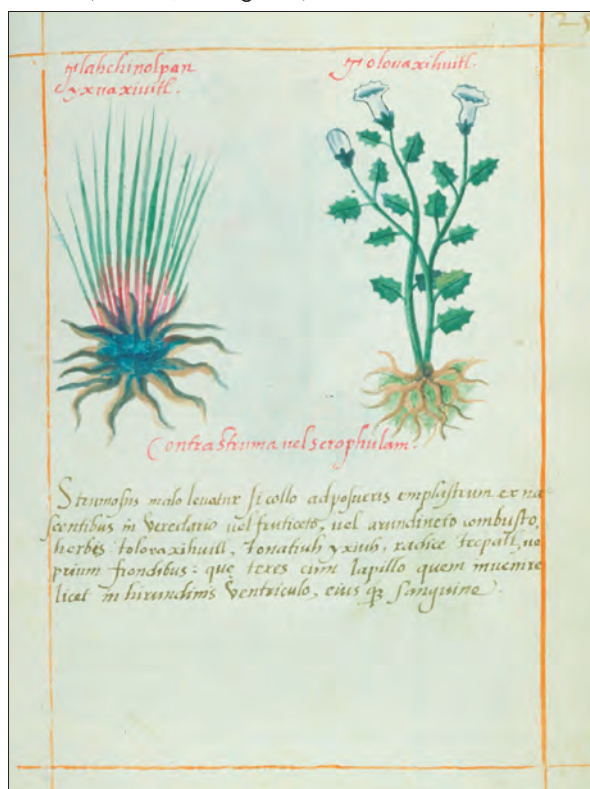 25
Tlahchinolpan
yxuaxiuitl.
Tolouaxihuitl.
Contra struma uel scrophulam.
Strumosus malo leuatur si collo adposueris emplastrum ex na
scentibus in Veredario uel fruticeto, uel arundineto combusto,
herbis tolouaxihuitl, tonatiuh yxiuh, radice tecpatl, ue
prium frondibus: que teres cum lapillo quem inuenire
licet in hirundinis Ventriculo, eius qƺ sanguine.